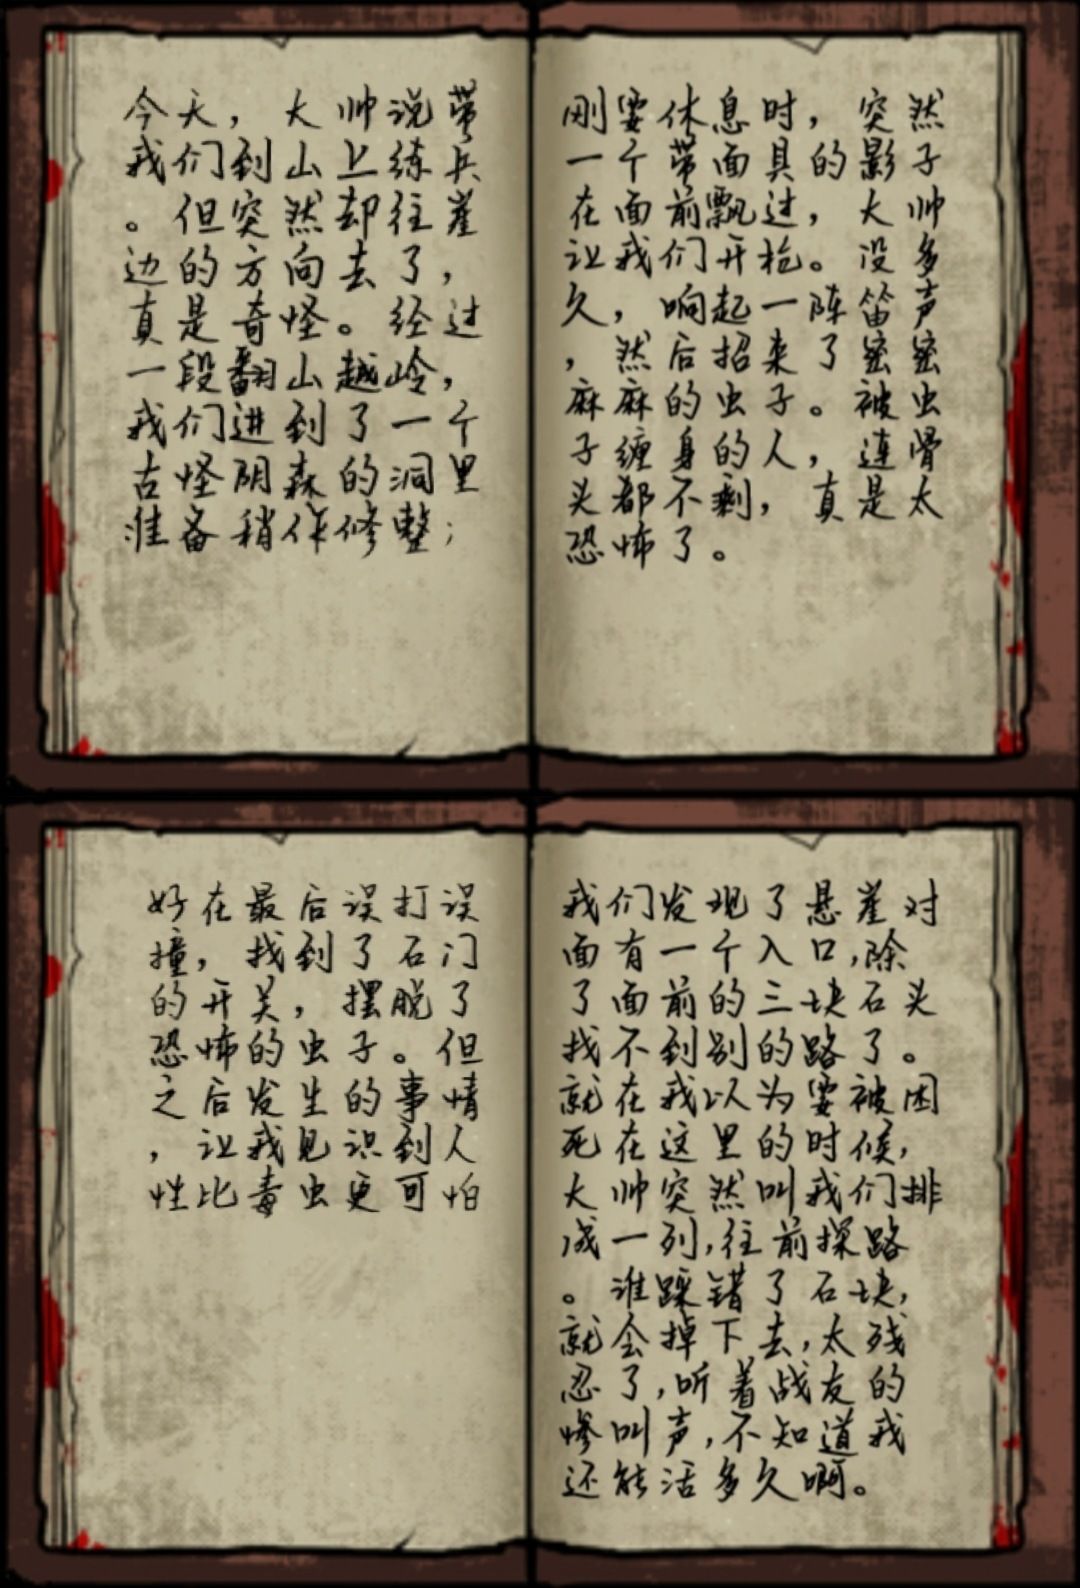 今天，大帅说带
我们到山上练兵
。但突然却往崖
边的方向去了，
真是奇怪。经过
一段翻山越岭，
我们进到了一个
古怪阴森的洞里
准备稍作修整；
刚要休息时，突然
一个带面具的影子
在面前飘过，大帅
让我们开枪。没多
久，响起一阵笛声
，然后招来了密密
麻麻的虫子。被虫
子缠身的人，连骨
头都不剩，真是太
恐怖了。
好在最后误打误
撞，找到了石门
的开关，摆脱了
恐怖的虫子。但
之后发生的事情
，让我见识到人
性比毒虫更可怕
我们发现了悬崖对
面有一个入口,除
了面前的三块石头
找不到别的路了。
就在我以为要被困
死在这里的时候,
大帅突然叫我们排
成一列,往前探路
。谁踩错了石块,
就会掉下去,太残
忍了,听着战友的
惨叫声,不知道我
还能活多久啊。